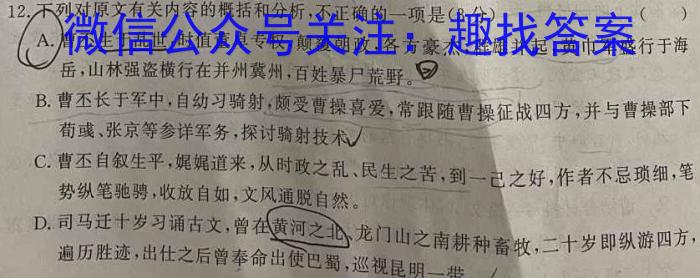 12.下列对原文有关内容的概括和分析,不正确的一项是(3分) ( )
微信公众号关注:趣找答案
A.曹丕生 时值董卓专权,颠覆朝政,各方豪杰 起,黄巾 盛行于海
岳,山林强盗横行在并州冀州,百姓暴尸荒野。
B.曹丕长于军中,自幼习骑射,颇受曹操喜爱,常跟随曹操征战四方,并与曹操部下
荀彧、张京等参详军务,探讨骑射技术
C.曹丕自叙生平,娓娓道来,从时政之乱、民生之苦,到一己之好,作者不忌琐细,笔
势纵笔驰骋,收放自如,文风通脱自然。
D.司马迁十岁习诵古文,曾在黄河之北、龙门山之南耕种畜牧,二十岁即纵游四方,
遍历胜迹,出仕之后曾奉命出使巴蜀,巡视昆明一带。